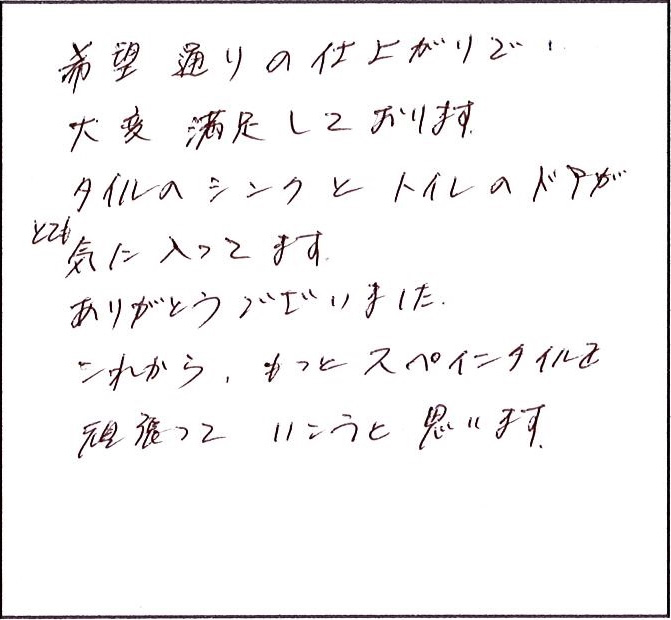 希望通りの仕上がりで、
大変満足しております。
タイルのシンクとトイレのドアが
とても気に入ってます。
ありがとうございました。
これから、もっとスペインタイルを
頑張っていこうと思います。